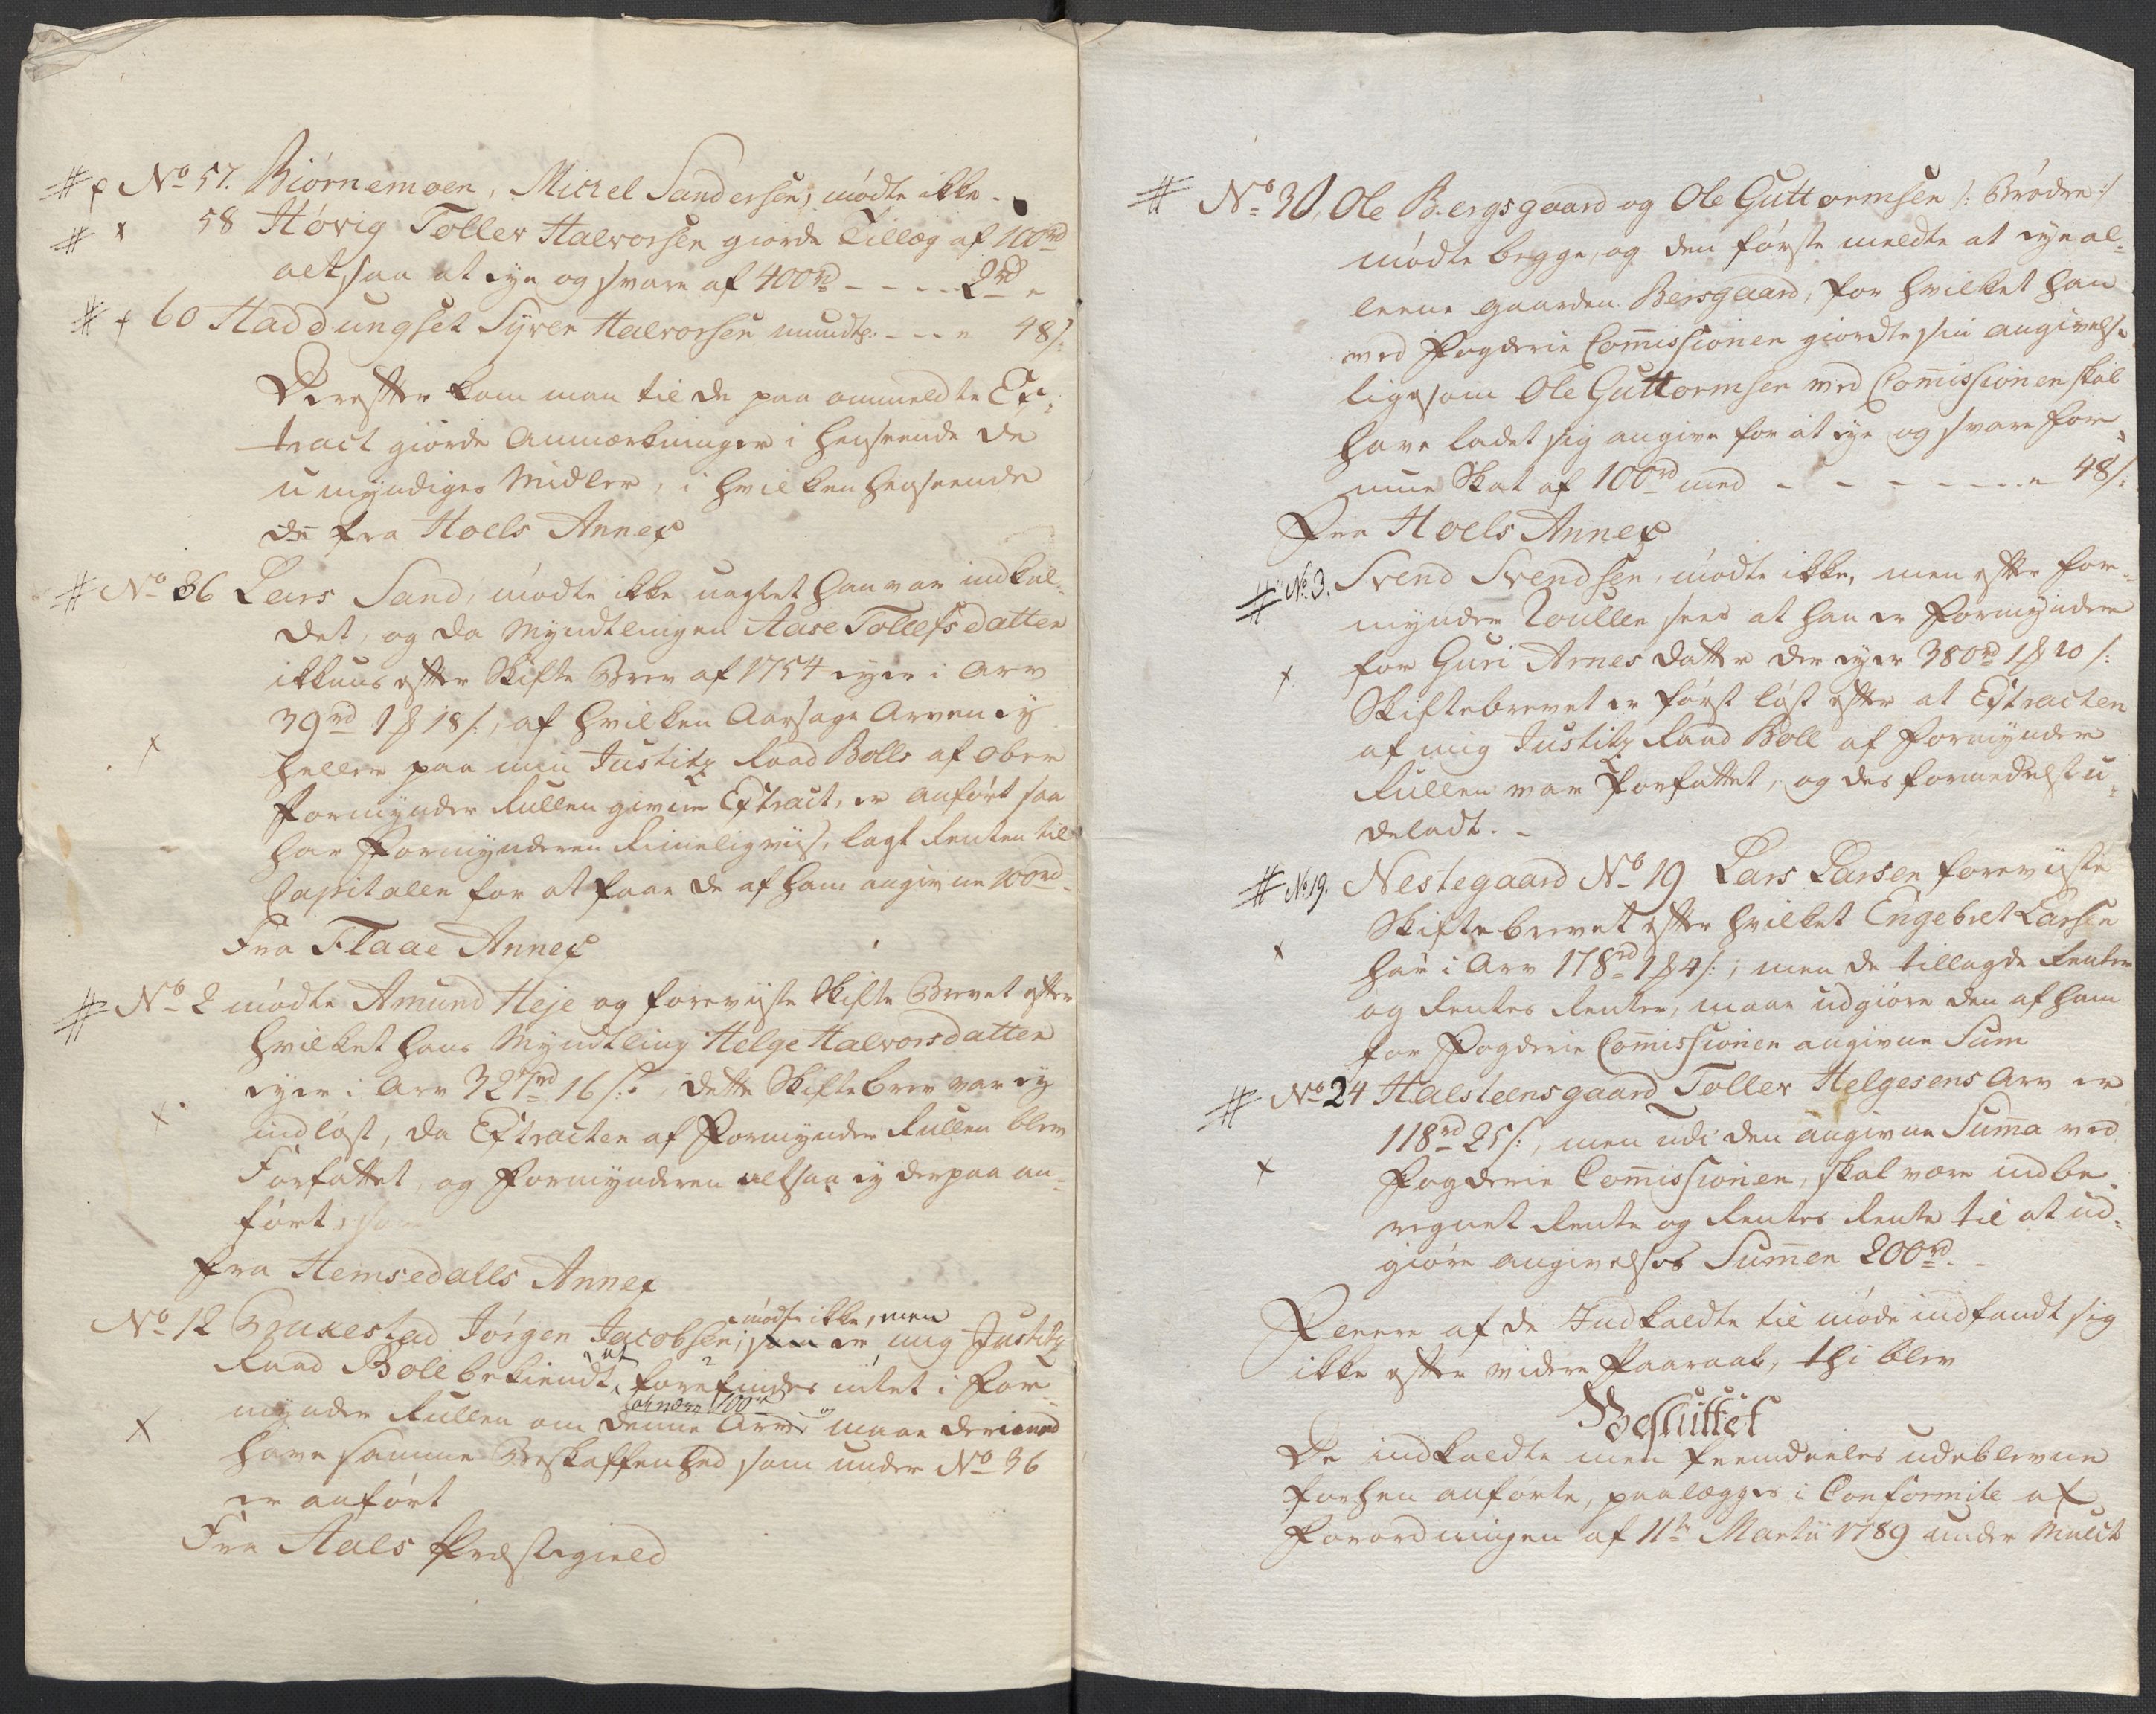 # x No 57. Biørnemoen, Michel Sandersen, mødte ikke.
# x 58 Høvig Toller Halvorsen giorde Tillæg af 100rd
altsaa at eye og svare af 400rd - - - - 2rd "
# x 60 Haddungset Syver Halvorsen mundtl: - - - " 48 s:
Derefter kom man til de paa ommeldte Ex-
tract giorde Anmærkninger i henseende de
umyndiges Midler, i hvilken henseende
de fra Hoels Annex
# No 36 Lars Sand, mødte ikke uagtet han var indkal-
det, og da Myndtlingen Aase Tollefsdatter
ikkuns efter Skifte Brev af 1754 eyer i Arv
39rd 1 ₰ 18 s:, af hvilken Aarsage Arven ey
x heller paa min Justitz Raad Bolls af Ober
Formynder Rullen givne Extract, er anført saa
har Formynderen Rimeligviis, lagt Renten til
Capitalen for at faae de af ham angivne 100rd
Fra Flaae Annex
# No 2 mødte Amund Heje og foreviiste Skifte Brevet efter
hvilket hans Myndtling Helge Halvorsdatter
eyer i Arv 327rd 16 s:, dette Skiftebrev var ey
x indløst, da Extracten af Formynder Rullen blev
Forfattet, og Formynderen altsaa ey derpaa an-
ført
fra Hemsedalls Annex
mødte ikke, men
No 12 Jørgen Jacobsen, er mig Justitz
Raad Boll bekiendt, at forefindes intet i For-
mynder Rullen om denne Arv og maae dermed
100rd
x have samme Beskaffenhed som under No 36
er anført
Fra Aals Præstegield
# No 30, Ole Bergsgaard og Ole Guttormsen /: Brødre :/
mødte begge, og den første meldte at eye al-
leene gaarden Bersgaard, for hvilket han
ved Fogderie Commissionen giordte sin angivelse
ligesom Ole Guttormsen ved Commissionen skal
have ladet sig angive for at eye og svare For-
mue Skat af 100rd med - - - - - - - " 48 s:
Fra Hoels Annex
# No 3. Svend Svendsen, mødte ikke, men efter For-
mynder Roullen sees at han er Formynder
x for Guri Arnes datter der eyer 380rd 1 ₰ 20 s:
Skiftebrevet er først løst efter at Extracten
af mig Justitz Raad Boll af Formynder
Rullen var Forfattet, og des formedelst u-
deladt. -
# No 19. Nestegaard No 19 Lars Larsen foreviiste
Skiftebrevet efter hvilket Engebret Larsen
x har i Arv 178rd 1 ₰ 4 s:; men de tillagde Renter
og Rentes Renter, maae udgiøre den af ham
for Fogderie Commissionen angivne Sum
# No 24 Halsteensgaard Toller Helgesens Arv er
118rd 25 s:, men udi den angivne Summa ved
x Fogderie Commissionen, skal være indbe-
regnet Rente og Rentes Rente til at ud-
giøre angivelses Summen 200rd. -
Fleere af de Indkaldte til møde indfandt sig
ikke efter videre Paaraab, thi blev
Besluttet
De indkaldte men fremdeeles udeblevne
forhen anførte, paalægges i Conformite af
Forordningen af 11te Martii 1789 under Mulct